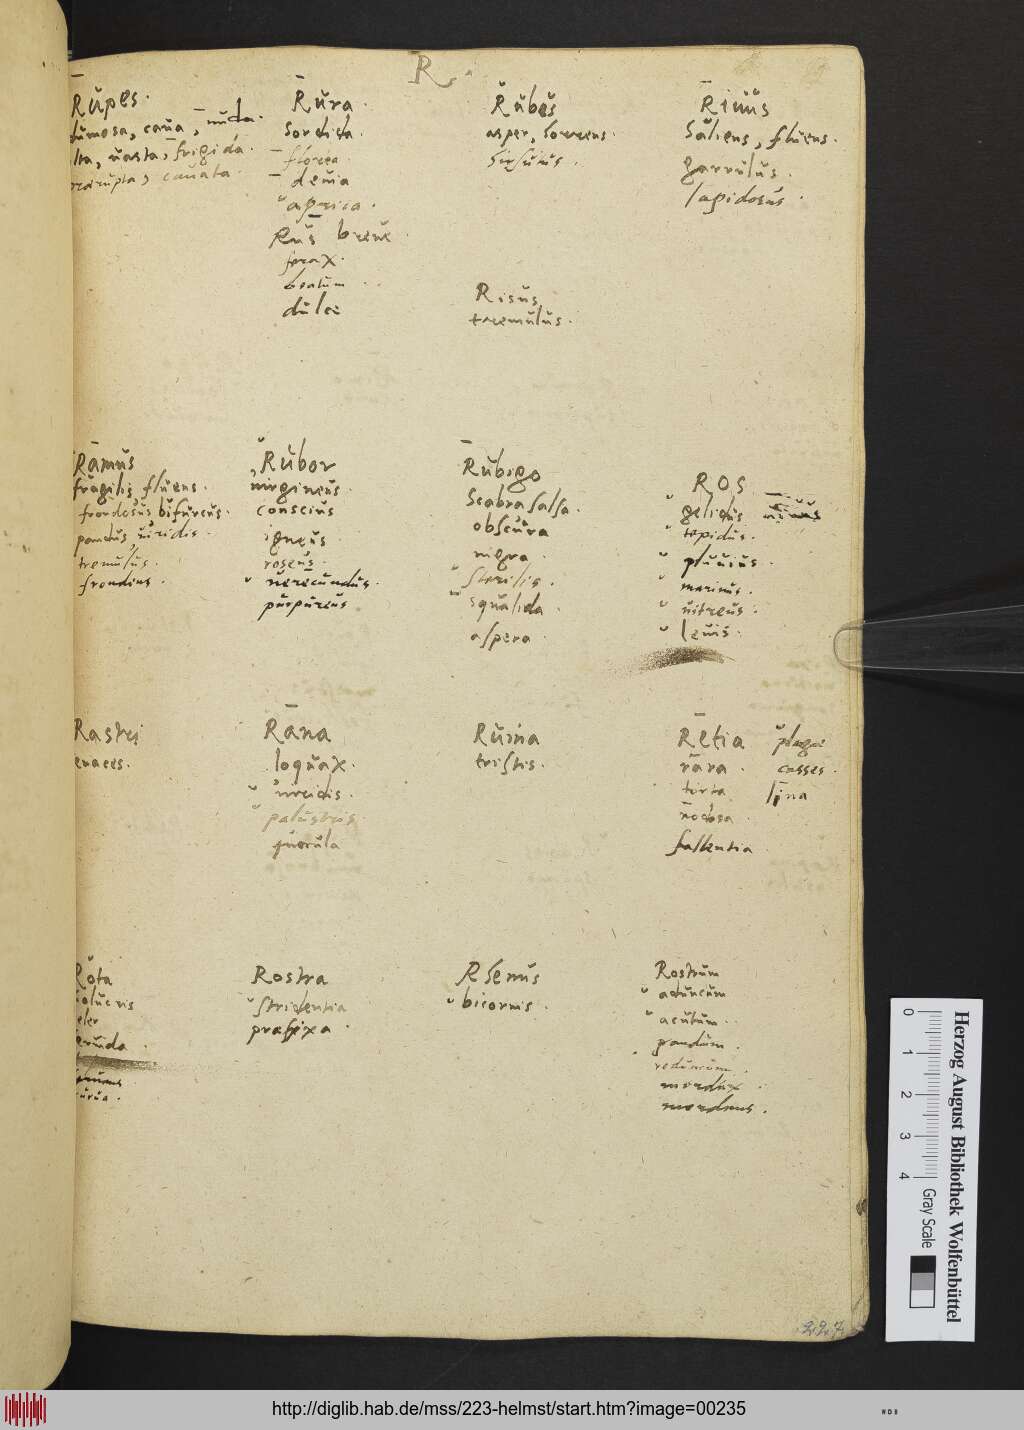 R.
Rupes.
dumosa, caua, nuda.
alta, uasta, frigida.
praerupta, cauata.
Rura.
Sordida.
florea
deuia
aprica.
Rus breue
ferax.
beatum
dulce
Rubus
asper, horrens.
hirsutus.
Risus
tremulus.
Riuus
Saliens, fluens.
garrulus.
lapidosus.
Ramus
fragilis, fluens.
frondosus bifurcus.
pandus, uiridis.
tremulus.
frondens.
Rubor
uirgineus.
conscius
igneus
roseus.
uerecundus.
purpureus
Rubigo
Scabra salsa.
obscura
nigra.
sterilis.
squalida.
aspera.
ROS
gelidus
tepidus.
pluuius.
marinus.
uitreus.
leuis.
Rastri
tenaces.
Rana
loquax.
uiridis.
palustris.
querula
Ruina
tristis.
Retia
rara.
torta
nodosa
fallentia
plagae
casses.
lina
Rota
uolucris
celer
curua.
Rostra
stridentia
praefixa.
Rhenus
bicornis.
Rostrum
aduncum
acutum.
pandum.
reduncum.
mordax.
mordens.
227
0
1
2
3
4
Gray Scale
Herzog August Bibliothek Wolfenbüttel
http://diglib.hab.de/mss/223-helmst/start.htm?image=00235